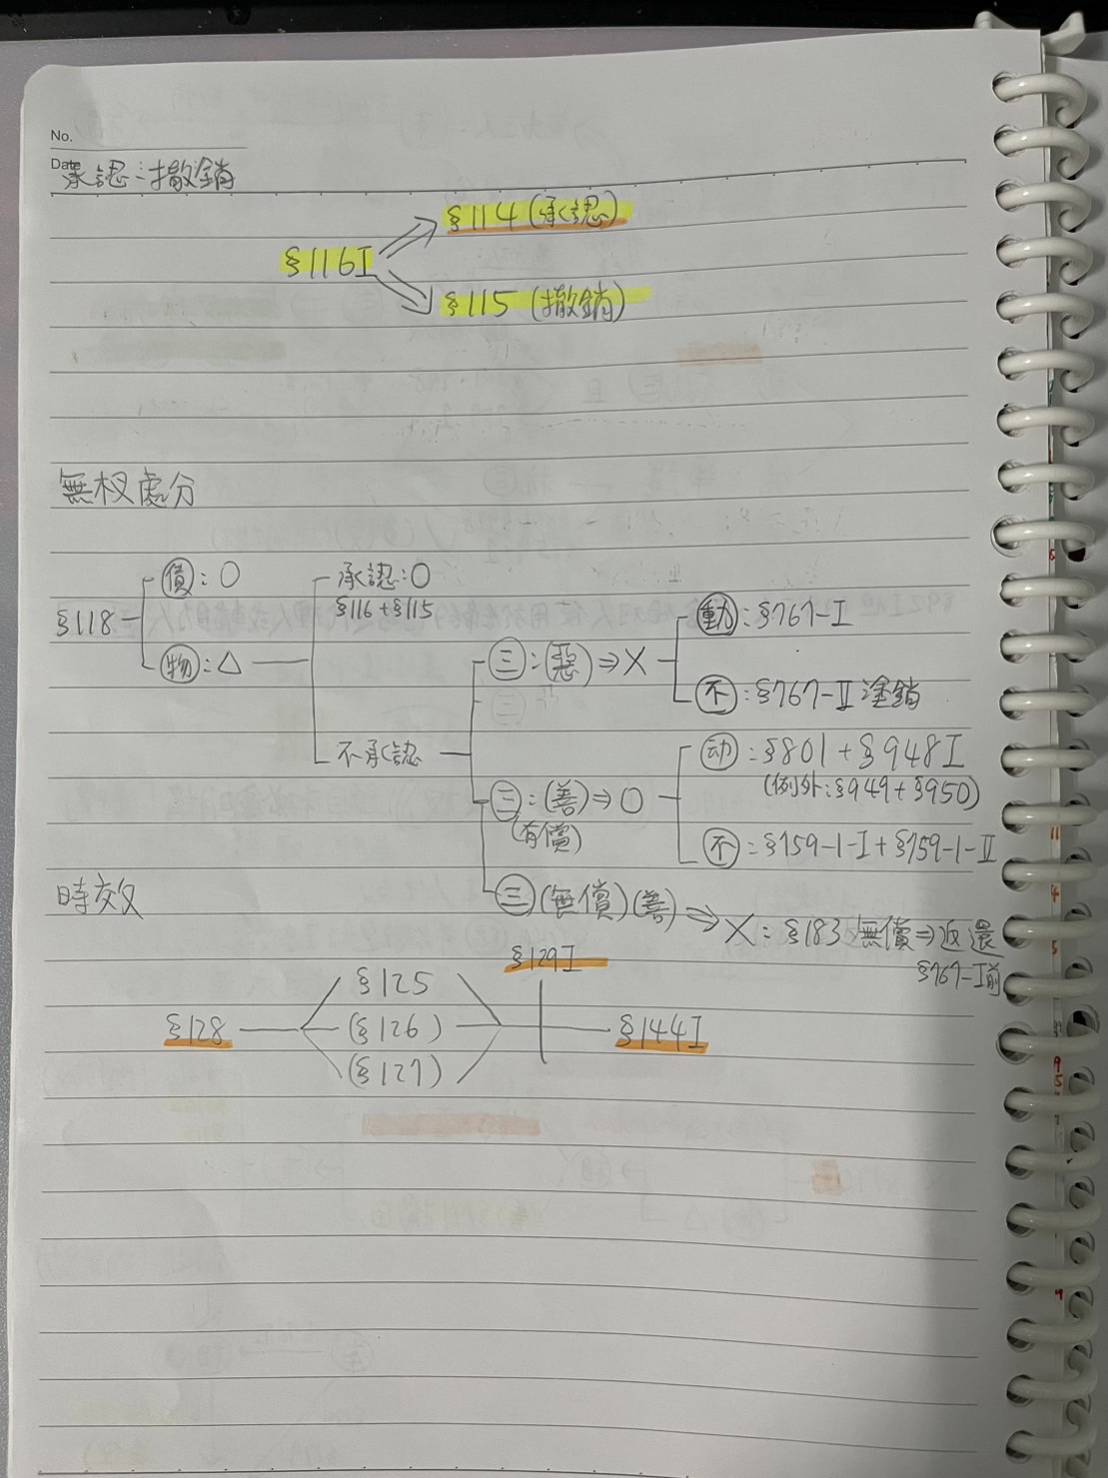 No.
Date
承認:撤銷
§114(承認)
§116I
§115(撤銷)
無权處分
債:○
承認:○
§116+§115
§118
動:§767-I
物:△
三:(惡)⇒X
不:§767-II塗銷
不承認
动:§801+§948I
(例外:§949+§950)
三:(善)⇒○
(有償)
不:§759-1-I+§759-1-II
時效
三(無償)(善)⇒X:§183無償⇒返還
§767-I前
§129I
§125
§128
(§126)
§144I
(§127)